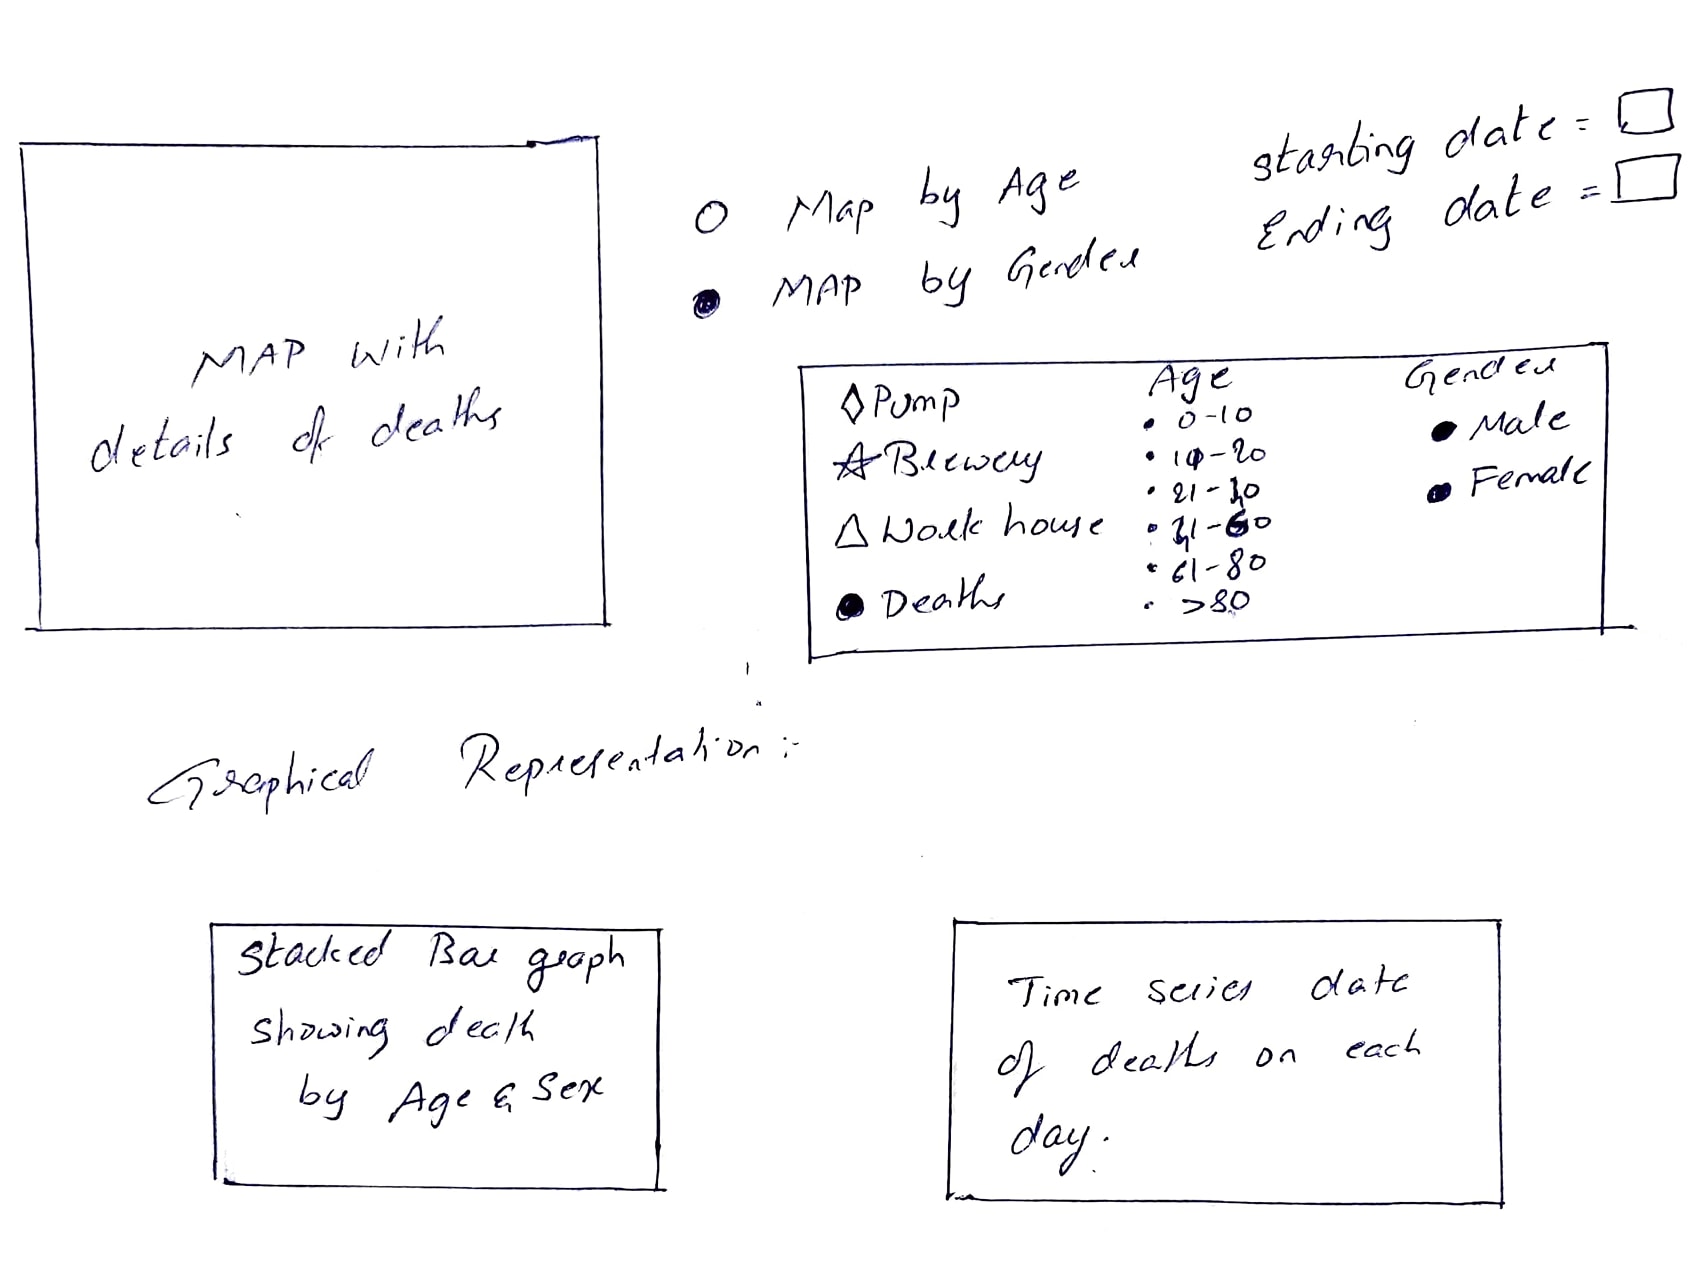 MAP with
details of deaths
Map by Age
MAP by Gender
starting date =
Ending date =
Pump
Brewery
Work house
Deaths
Age
0-10
61-80
>80
Gender
Male
Female
Graphical Representation :-
Stacked Bar graph
showing death
by Age & Sex
Time series date
of deaths on each
day.